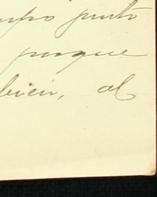 punto
porque
bien, al